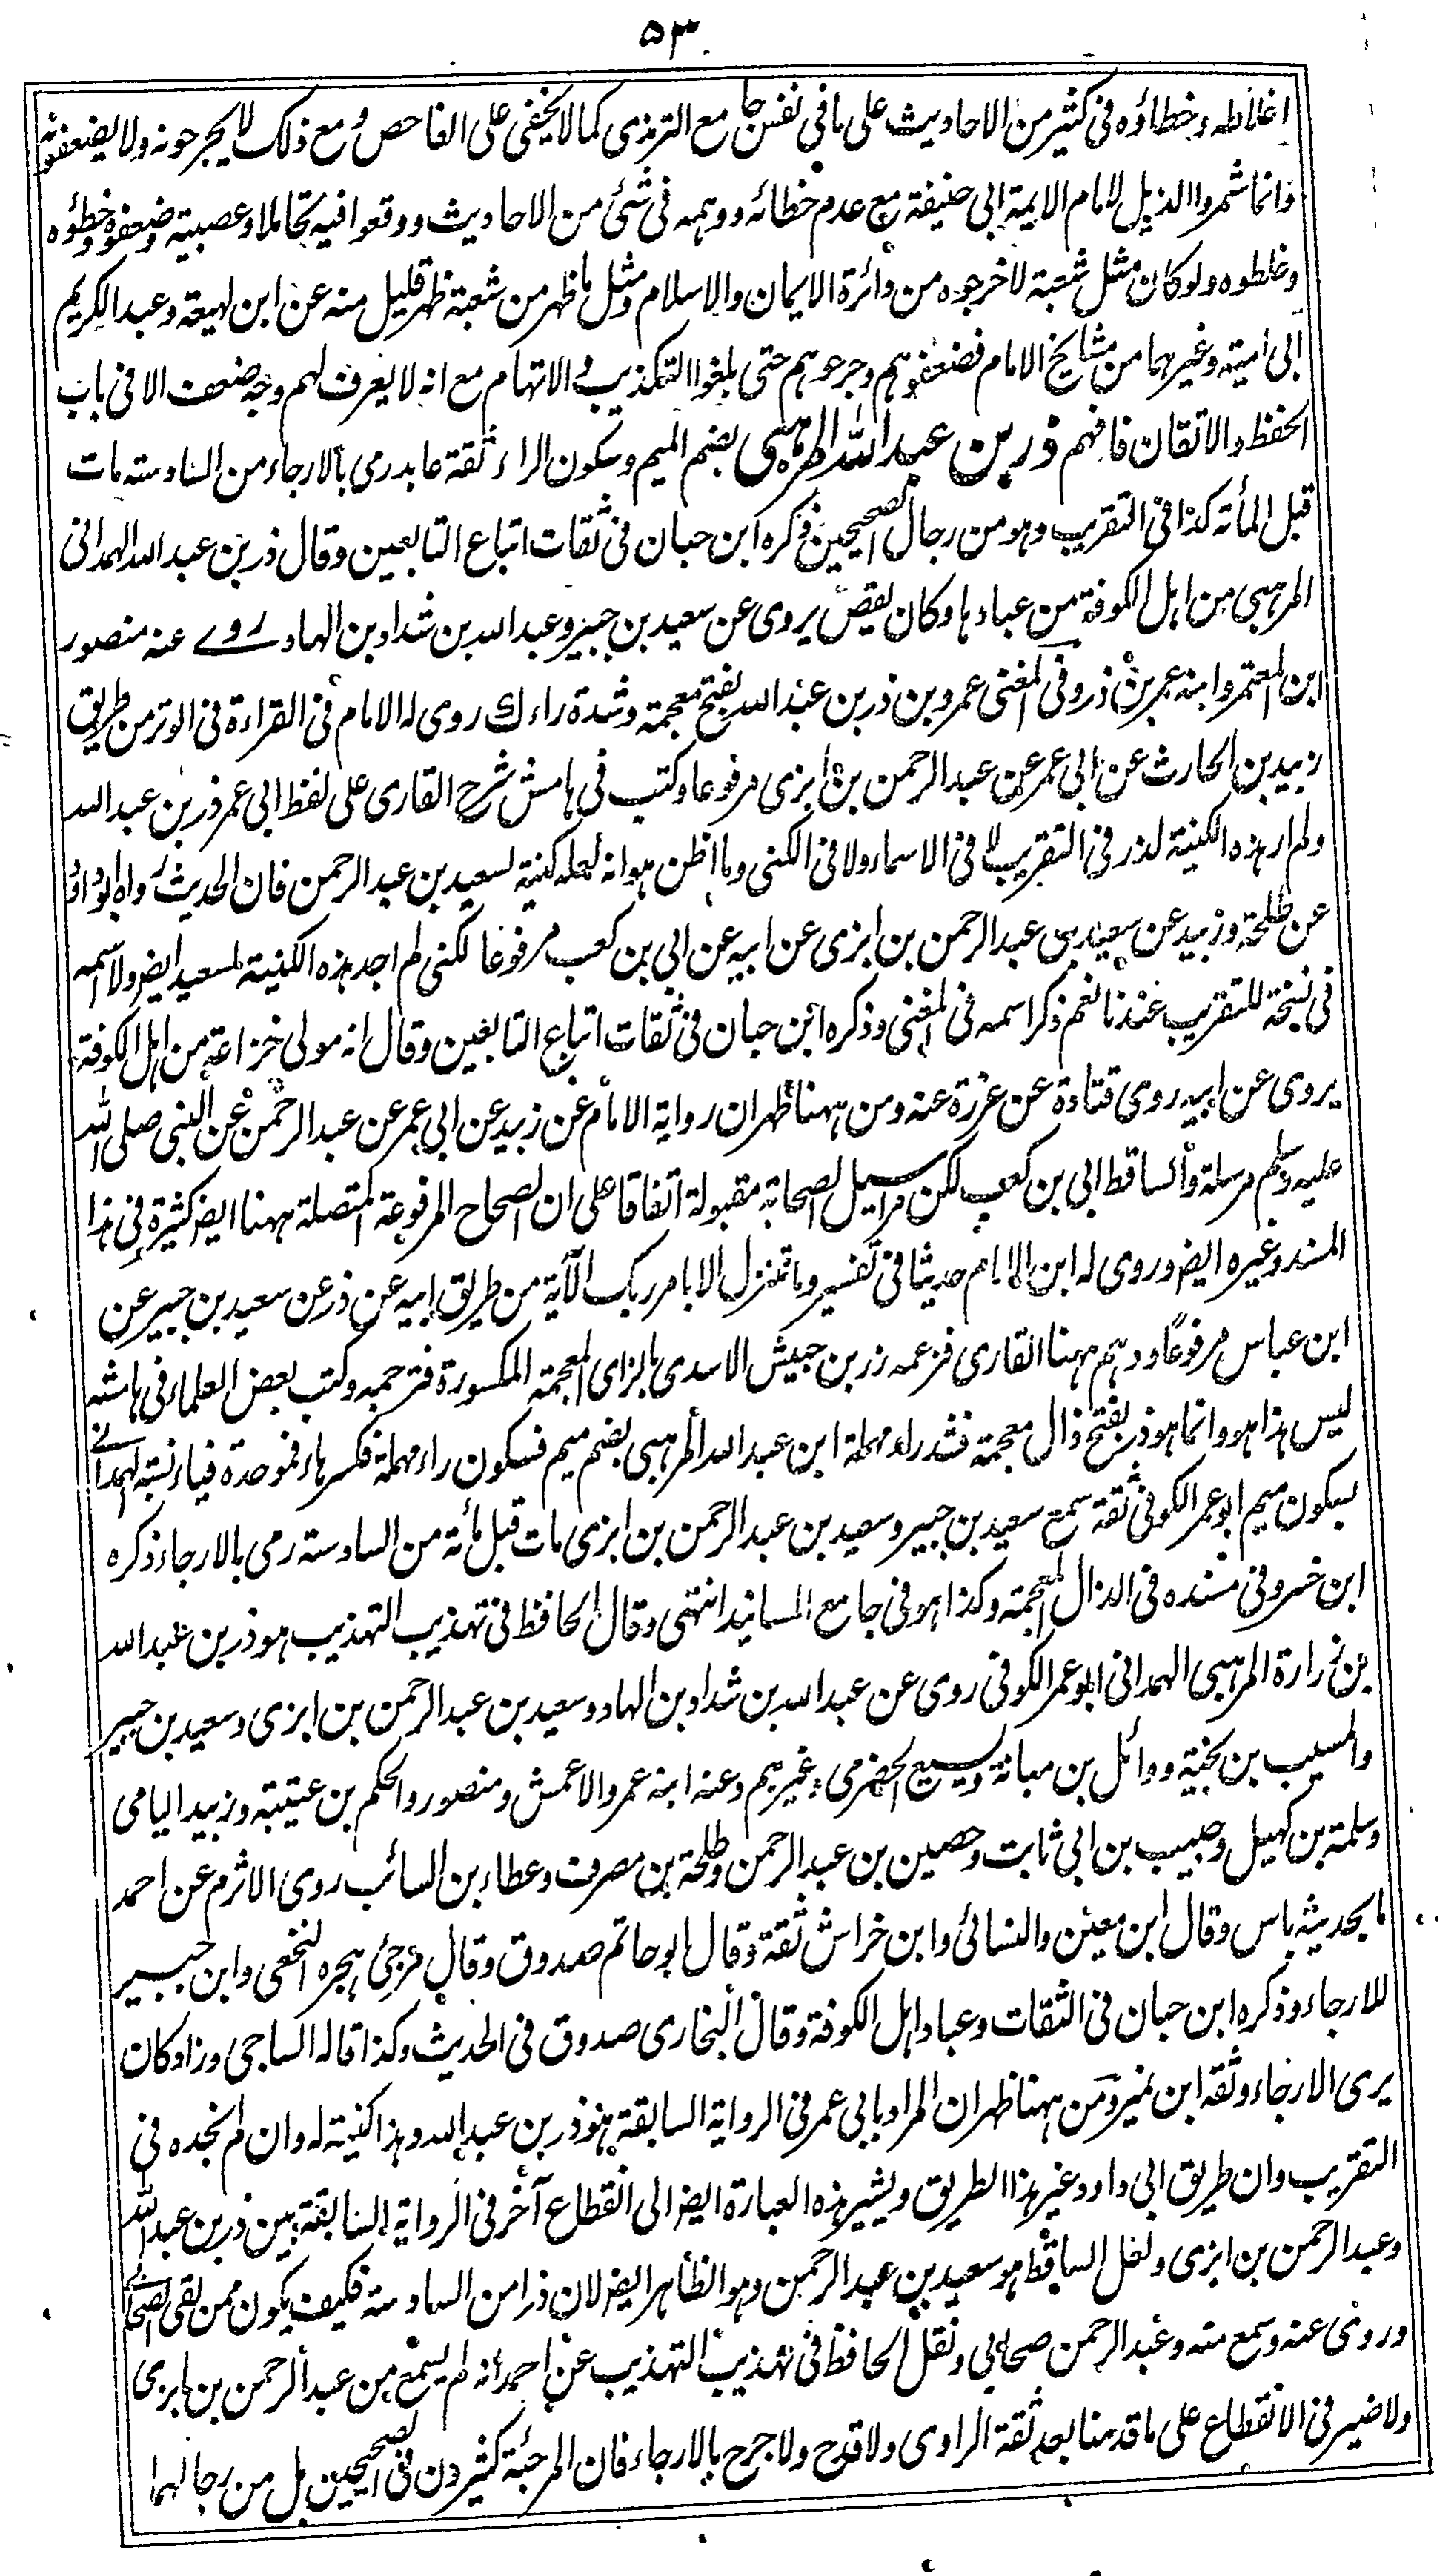 ۵۳
اغلاطه وخطاؤه فى كثير من الاحاديث على ما فى نفس جامع الترمذى كما لا يخفى على الفاحص ومع ذلك لا يجرحونه ولا يضعفونه
وانما شمروا الذيل لامام الايمة ابى حنيفة مع عدم خطائه ووهمه فى شئ من الاحاديث ووقعوا فيه تحاملا وعصبية وضعفوه وخطؤه
وغلطوه ولو كان مثل شعبة لاخرجوه من دائرة الايمان والاسلام ومثل ما ظهر من شعبة ظهر قليل منه عن ابن لهيعة وعبد الكريم
ابى امية وغيرهما من مشايخ الامام فضعفوهم وجرحوهم حتى بلغوا التكذيب والاتهام مع انه لا يعرف لهم وجه ضعف الا فى باب
الحفظ والاتقان فافهم ذر بن عبد الله المرهبى بضم الميم وسكون الراء ثقة عابد رمى بالارجاء من السادسة مات
قبل المأة كذا فى التقريب وهو من رجال الصحيحين ذكره ابن حبان فى ثقات اتباع التابعين وقال ذر بن عبد الله الهمدانى
المرهبى من اهل الكوفة من عبادها وكان يقص يروى عن سعيد بن جبير وعبد الله بن شداد بن الهاد روى عنه منصور
ابن المعتمر وابنه عمر بن ذر وفى المغنى عمرو بن ذر بن عبد الله بفتح معجمة وشدة راء ك روى له الامام فى القراءة فى الوتر من طريق
زبيد بن الحارث عن ابى عمر عن عبد الرحمن بن ابزى مرفوعا وكتب فى هامش شرح القارى على لفظ ابى عمر ذر بن عبد الله
ولم ار هذه الكنية لذر فى التقريب لا فى الاسماء ولا فى الكنى وما اظن هو انه لعله كنية لسعيد بن عبد الرحمن فان الحديث رواه ابو داؤد
عن طلحة وزبيد عن سعيد بن عبد الرحمن بن ابزى عن ابيه عن ابى بن كعب مرفوعا لكنى لم اجد هذه الكنية لسعيد ايضا ولا اسمه
فى نسخة للتقريب عندنا نعم ذكر اسمه فى المغنى وذكره ابن حبان فى ثقات اتباع التابعين وقال انه مولى خزاعة من اهل الكوفة
يروى عن ابيه روى قتادة عن عزرة عنه ومن ههنا ظهر ان رواية الامام عن زبيد عن ابى عمر عن عبد الرحمن عن النبى صلى الله
عليه وسلم مرسلة والساقط ابى بن كعب لكن مراسيل الصحابة مقبولة اتفاقا على ان الصحاح المرفوعة المتصلة ههنا ايضا كثيرة فى هذا
المسند وغيره ايضا وروى له ابن الامام حديثا فى تفسير وما نتنزل الا بامر ربك الآية من طريق ابيه عن ذر عن سعيد بن جبير عن
ابن عباس مرفوعًا ووهم ههنا القارى فزعمه زر بن حبيش الاسدى بالزاى المعجمة المكسورة فترجمه وكتب بعض العلماء فى هامشه
ليس هذا هو وانما هو ذر بفتح ذال معجمة فشد راء مهملة ابن عبد الله المرهبى بضم ميم فسكون راء مهملة فكسر هاء فموحدة فياء نسبة الهمدانى
بسكون ميم ابو عمر الكوفى ثقة سمع سعيد بن جبير وسعيد بن عبد الرحمن بن ابزى مات قبل مأئة من السادسة رمى بالارجاء ذكره
ابن خسرو فى مسنده فى الذال المعجمة وكذا هو فى جامع المسانيد انتهى وقال الحافظ فى تهذيب التهذيب هو ذر بن عبد الله
بن زرارة المرهبى الهمدانى ابو عمر الكوفى روى عن عبد الله بن شداد بن الهاد وسعيد بن عبد الرحمن بن ابزى وسعيد بن جبير
والمسيب بن نجبة ووائل بن مهانة ويسيع الحضرمى وغيرهم وعنه ابنه عمر والاعمش ومنصور والحكم بن عتيبة وزبيد اليامى
وسلمة بن كهيل وحبيب بن ابى ثابت وحصين بن عبد الرحمن وطلحة بن مصرف وعطاء بن السائب روى الاثرم عن احمد
ما بحديثه باس وقال ابن معين والنسائى وابن خراش ثقة وقال ابو حاتم صدوق وقال مرجئ هجره النخعى وابن جبير
للارجاء وذكره ابن حبان فى الثقات وعباد اهل الكوفة وقال البخارى صدوق فى الحديث وكذا قاله الساجى وزاد كان
يرى الارجاء وثقه ابن نمير ومن ههنا ظهر ان المراد بابى عمر فى الرواية السابقة هو ذر بن عبد الله وهذا كنية له وان لم نجده فى
التقريب وان طريق ابى داود غير هذا الطريق ويشير هذه العبارة ايضا الى انقطاع آخر فى الرواية السابقة بين ذر بن عبد الله
وعبد الرحمن بن ابزى ولعل الساقط هو سعيد بن عبد الرحمن وهو الظاهر ايضا لان ذرا من السادسة فكيف يكون ممن لقى الصحابى
وروى عنه وسمع منه وعبد الرحمن صحابى ونقل الحافظ فى تهذيب التهذيب عن احمد انه لم يسمع من عبد الرحمن بن ابزى
ولا ضير فى الانقطاع على ما قدمنا بعد ثقة الراوى ولا قدح ولا جرح بالارجاء فان المرجئة كثيرون فى الصحيحين بل من رجالهما